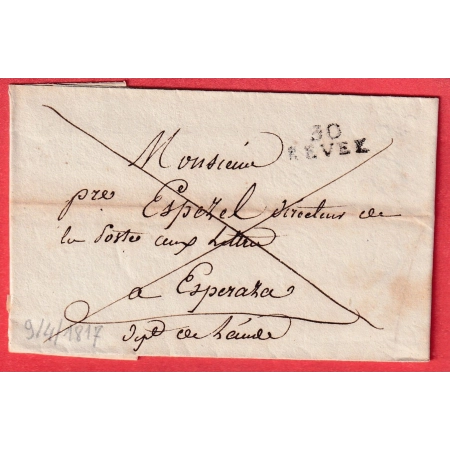 30
REVEL
Monsieur
pre Espezel directeur de
la Poste aux lettres
a Esperaza
dept de l'aude
9/4/1817